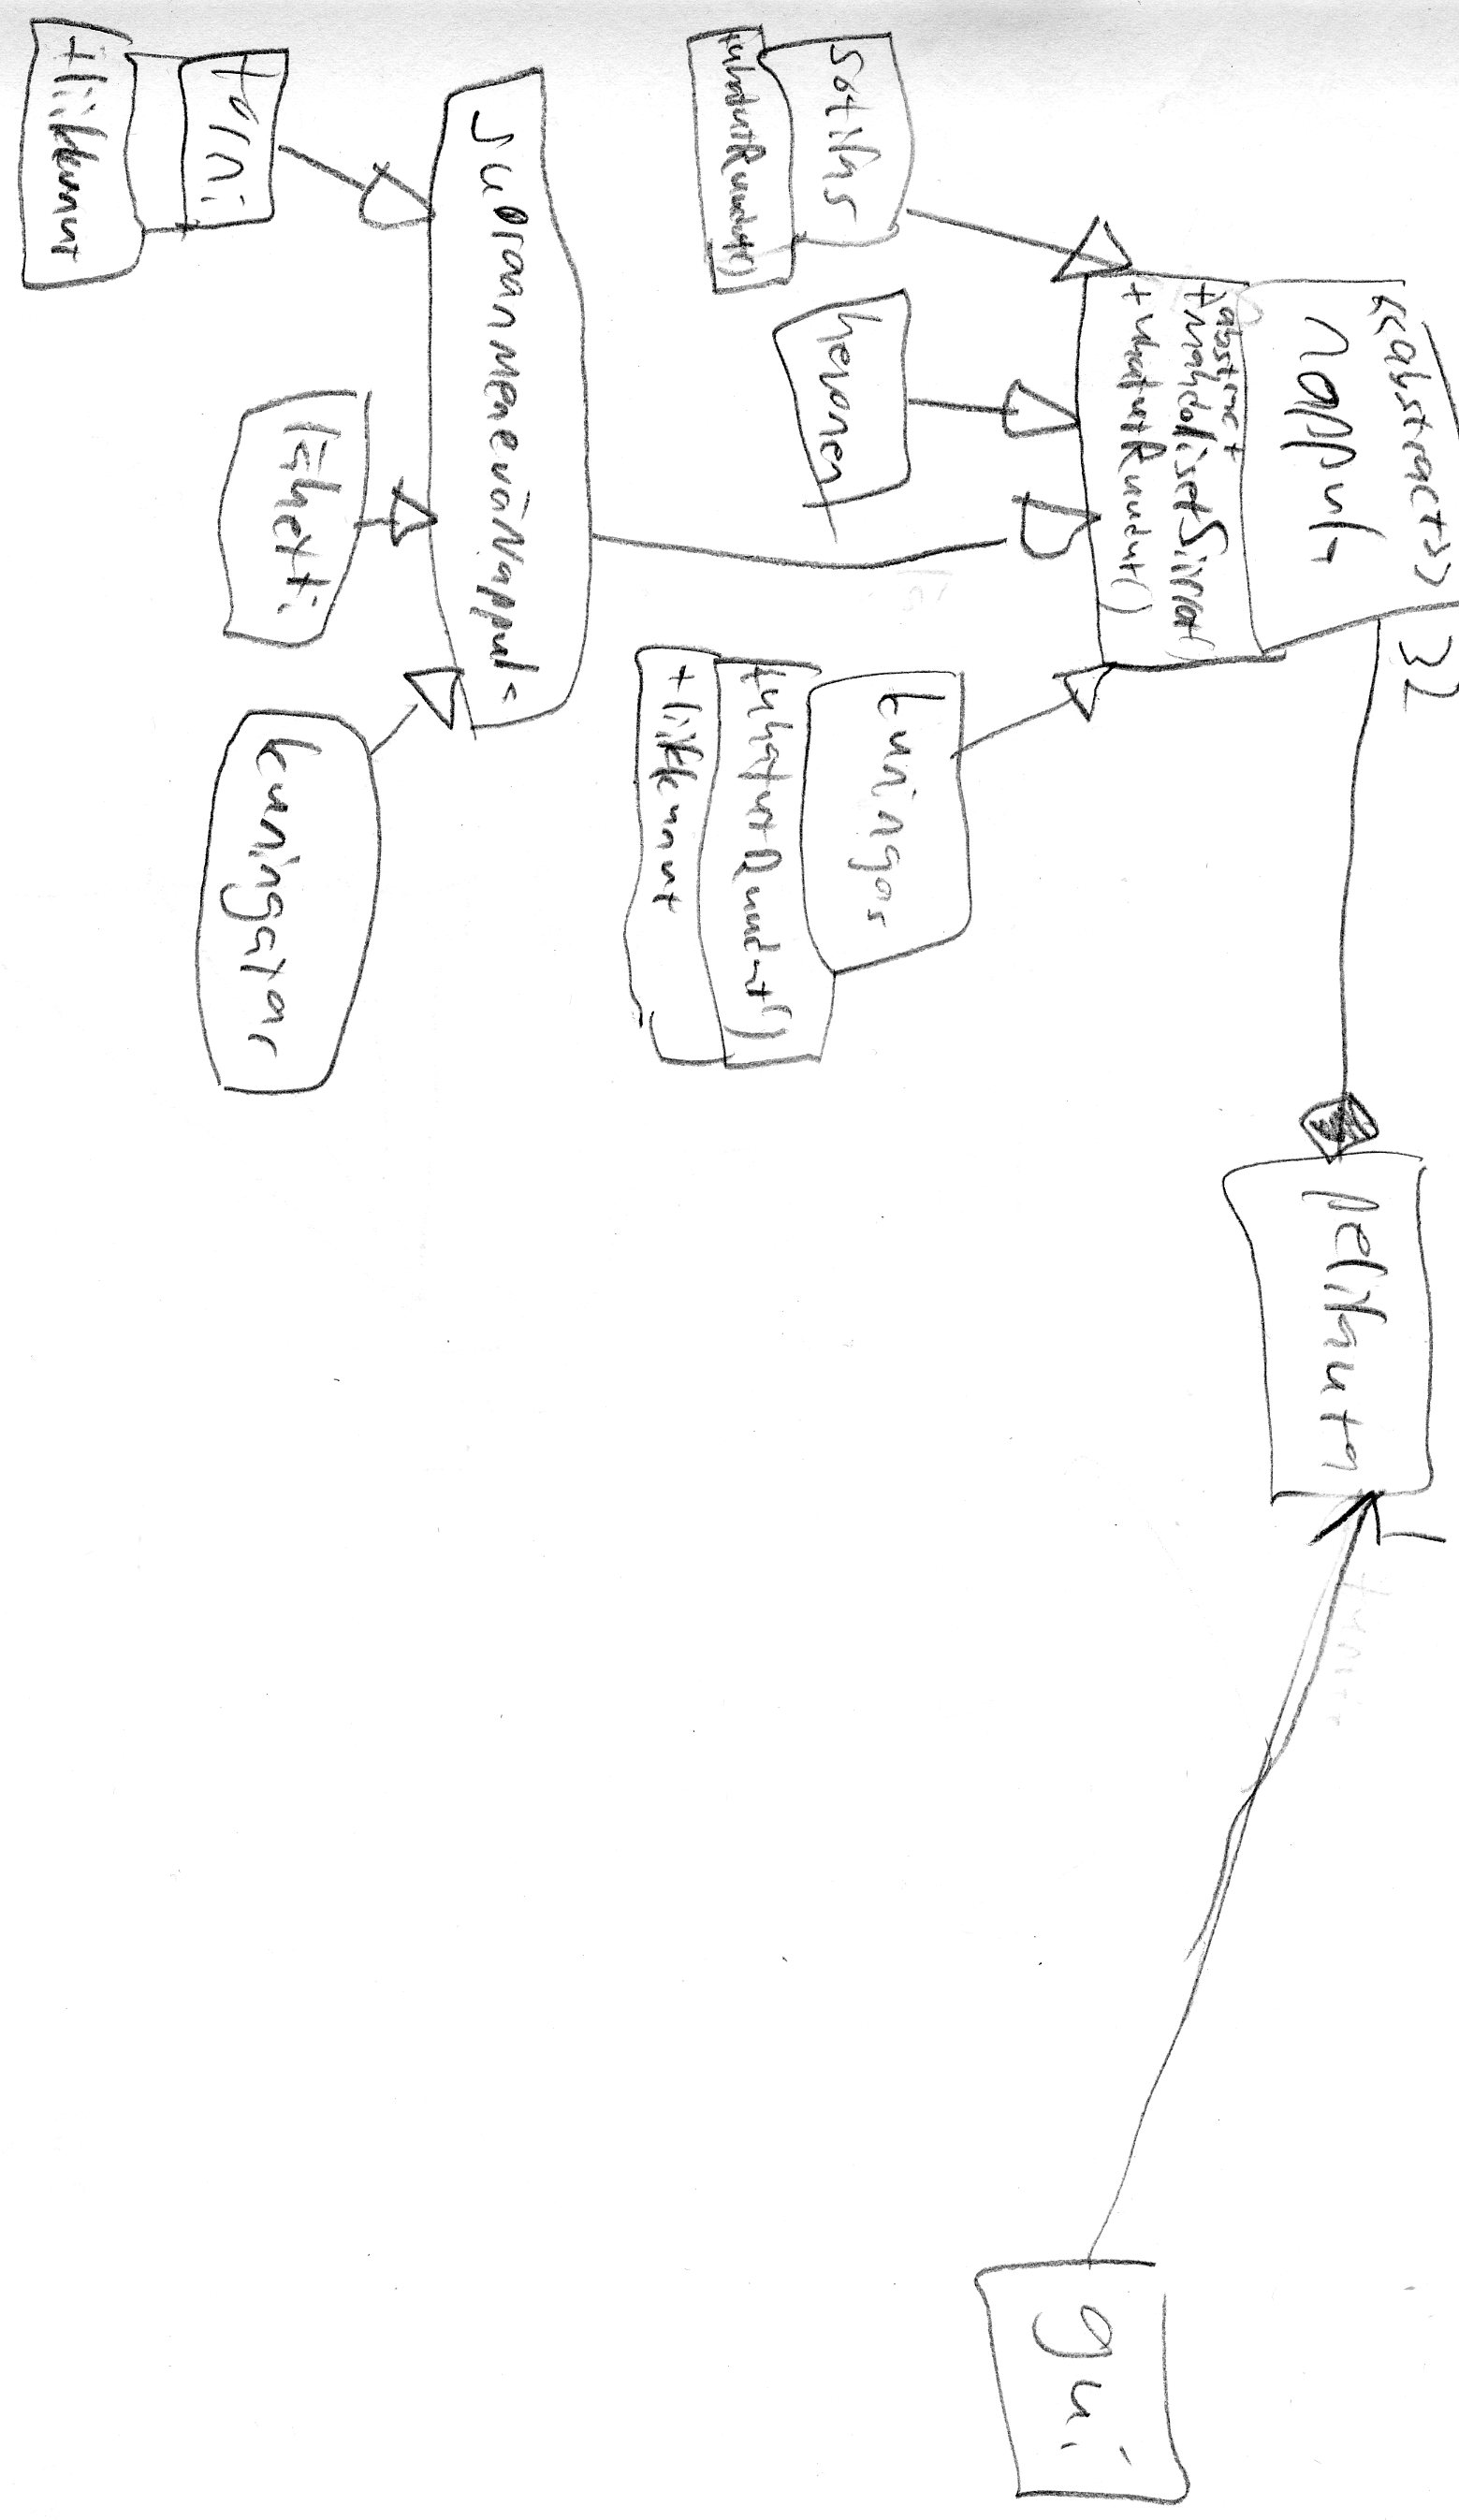 <<abstract>>
32
nappula
abstract
+ mahdollisetSiirrot()
+ uhatutRuudut()
pelilauta
1
gui
sotilas
+uhatutRuudut()
hevonen
kuningas
+uhatutRuudut()
+liikkunut
suoraanMeneväNappula
torni
+liikkunut
lähetti
kuningatar